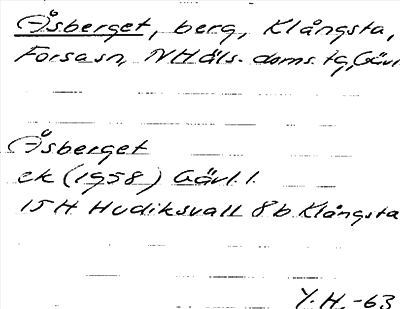 Åsberget, berg, Klångsta,
Forsa sn, N Häls. doms. tg, Gävl
Åsberget
ek (1958) Gävl. l.
15H Hudiksvall 8b Klångsta
Y. H. -63